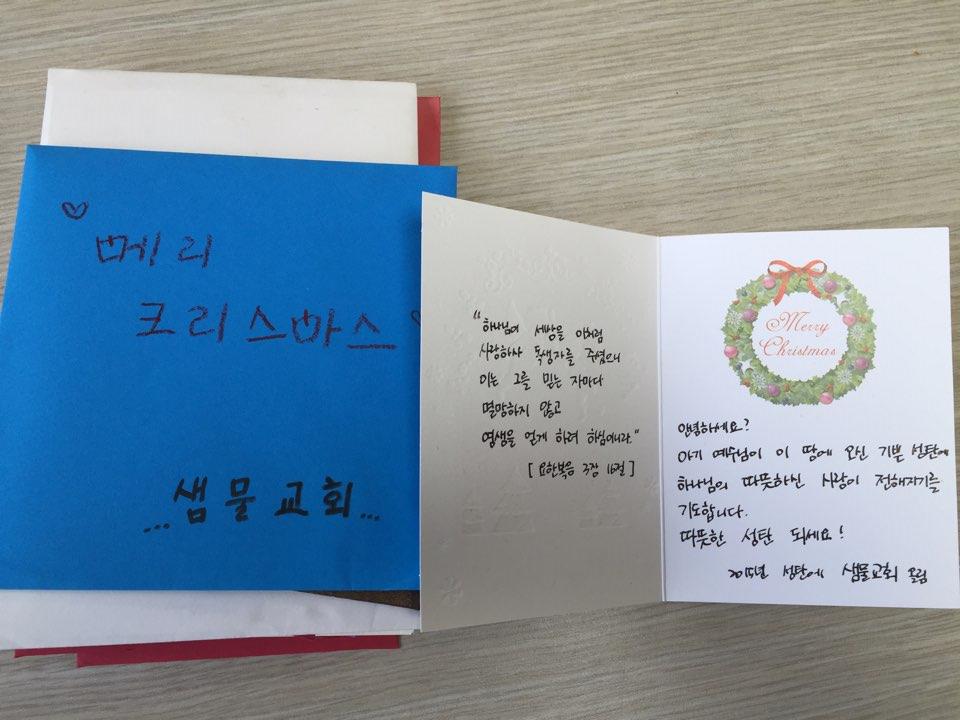 메리
크리스마스
... 샘물교회 ...
"하나님이 세상을 이처럼
사랑하사 독생자를 주셨으니
이는 그를 믿는 자마다
멸망하지 않고
영생을 얻게 하려 하심이니라."
[요한복음 3장 16절]
Merry
Christmas
안녕하세요?
아기 예수님이 이 땅에 오신 기쁜 성탄에
하나님의 따뜻하신 사랑이 전해지기를
기도합니다.
따뜻한 성탄 되세요!
2015년 성탄에 샘물교회 올림